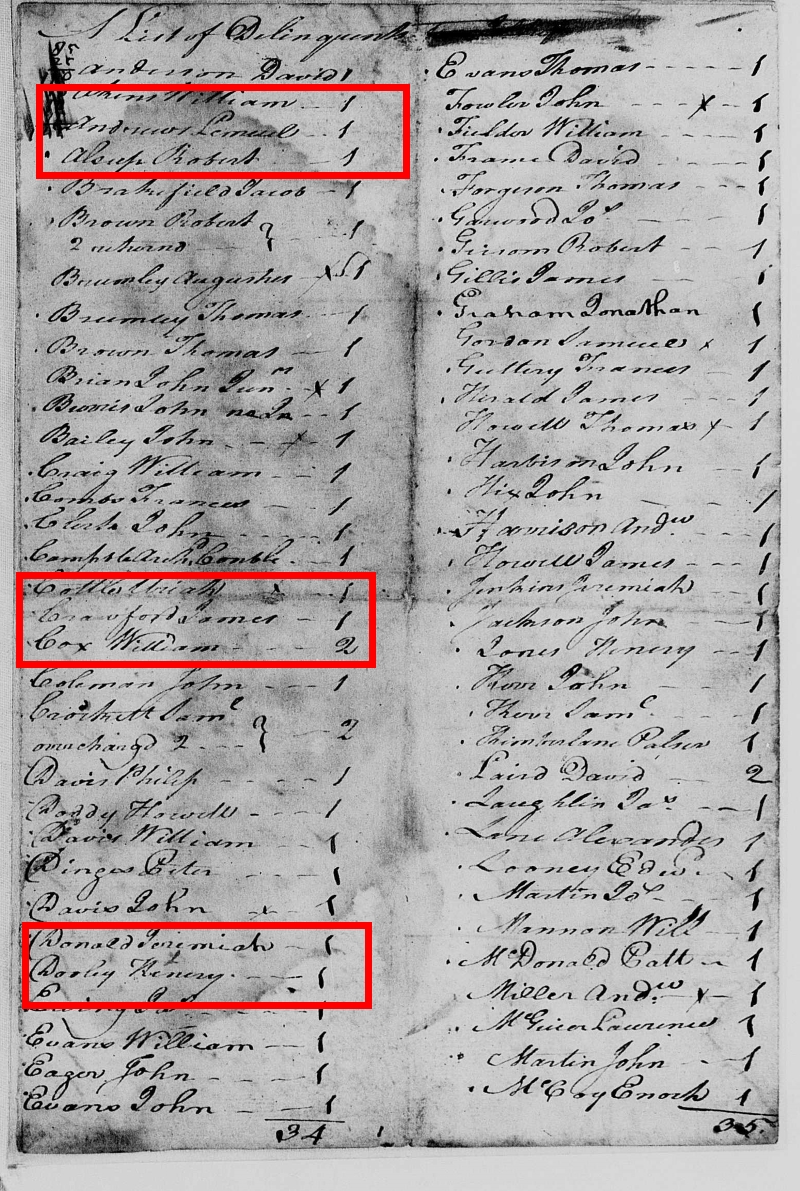 A List of Delinquents
Anderson David 1
Akens William 1
Andrews Lemuel 1
Alsup Robert 1
Brakefield Jacob 1
Brown Robert
2 returnd } 1
Brumley Augustus x 1
Brumley Thomas 1
Brown Thomas 1
Brian John Junr x 1
John 1
Bailey John x 1
Craig William 1
Combs Frances 1
Clerk John 1
1
Cottle Uriah x 1
Crawford James 1
Cox William 2
Coleman John 1
Crockett Saml
overchargd 2 } 2
Davis Philip 1
Doddy Howell 1
Davis William 1
Dinges Peter 1
Davis John x 1
Donald Jeremiah 1
Dooley Henery 1
Ewing 1
Evans William 1
Eager John 1
Evans John 1
34
Evans Thomas 1
Fowler John x 1
Fielder William 1
Frame David 1
Forgeson Thomas 1
Garwood Jos 1
Grisom Robert 1
Gillis James 1
Graham Jonathan 1
Gordon Samuel x 1
Guttery Frances 1
Herald James 1
Howell Thomas x 1
Harbison John 1
Hix John 1
Harrison Andw 1
Howell James 1
Jenkins Jeremiah 1
Jackson John 1
Jones Henery 1
Kerr John 1
Kerr Saml 1
Kimberlane Palser 1
Laird David 2
Laughlin Jas 1
Lane Alexander 1
Looney Edwd 1
Martin Jos 1
Mannon Will 1
McDonald Patt 1
Miller Andw x 1
McGuier Lawrence 1
Martin John 1
McCoy Enoch 1
35